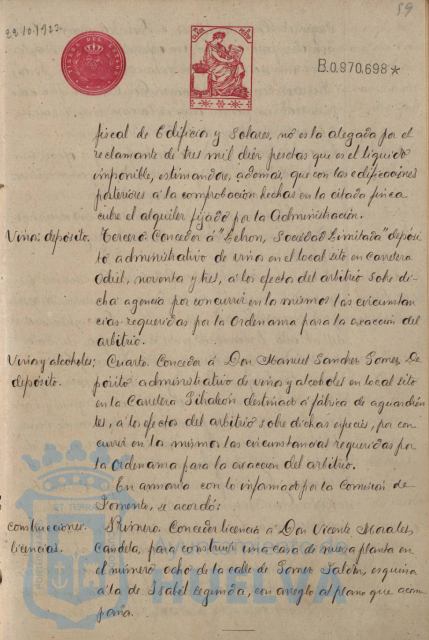 22-10-1923
59
B.0.970.698*
fiscal de Edificios y Solares, no es la alegada por el
reclamante de tres mil diez pesetas que es el líquido
imponible, estimandose, ademas, que con las edificaciones
posteriores á la comprobación hechas en la citada finca
cubre el alquiler fijado por la Administración.
Vinos: depósito. Tercero: Conceder á "Echon, Sociedad Limitada" depósi
to administrativo de vinos en el local sito en Carretera
Odiel, noventa y tres, á los efectos del arbitrio sobre di-
cha especie por concurrir en los mismos las circunstan
cias requeridas por la Ordenanza para la exacción del
arbitrio.
Vinos y alcoholes; Cuarto. Conceder á Don Manuel Sanchez Gomez De
depósito. pósito administrativo de vinos y alcoholes en local sito
en la Carretera Gibraleón destinado á fábrica de aguardien
tes, á los efectos del arbitrio sobre dichas especies, por con
currir en los mismos las circunstancias requeridas por
la Ordenanza para la exaccion del arbitrio.
En armonía con lo informado por la Comisión de
Fomento, se acordó:
Construcciones. Primero. Conceder licencia á Don Vicente Morales
Licencias. Candela, para construir una casa de nueva planta en
el número ocho de la calle de Gomez Jaldón, esquina
á la de Isabel Segunda, con arreglo al plano que acom
paña.
HUELVA